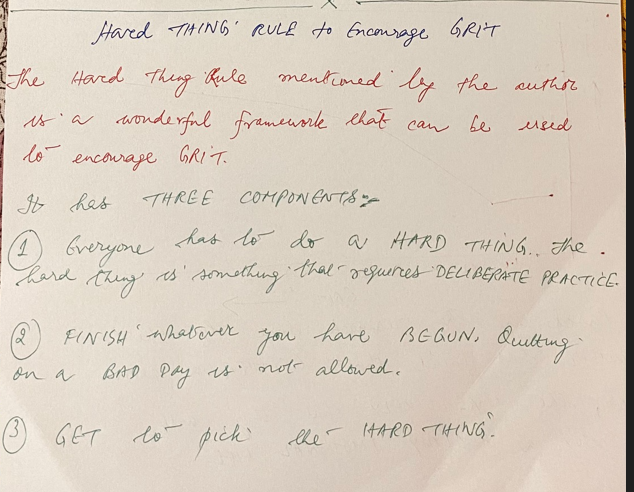 Hard THING' RULE to Encourage GRIT
The Hard Thing Rule mentioned by the author
is a wonderful framework that can be used
to encourage GRIT.
It has THREE COMPONENTS:-
① Everyone has to do a HARD THING. The
hard thing is something that requires DELIBERATE PRACTICE.
② FINISH whatever you have BEGUN. Quitting
on a BAD Day is not allowed.
③ GET to pick the HARD THING.